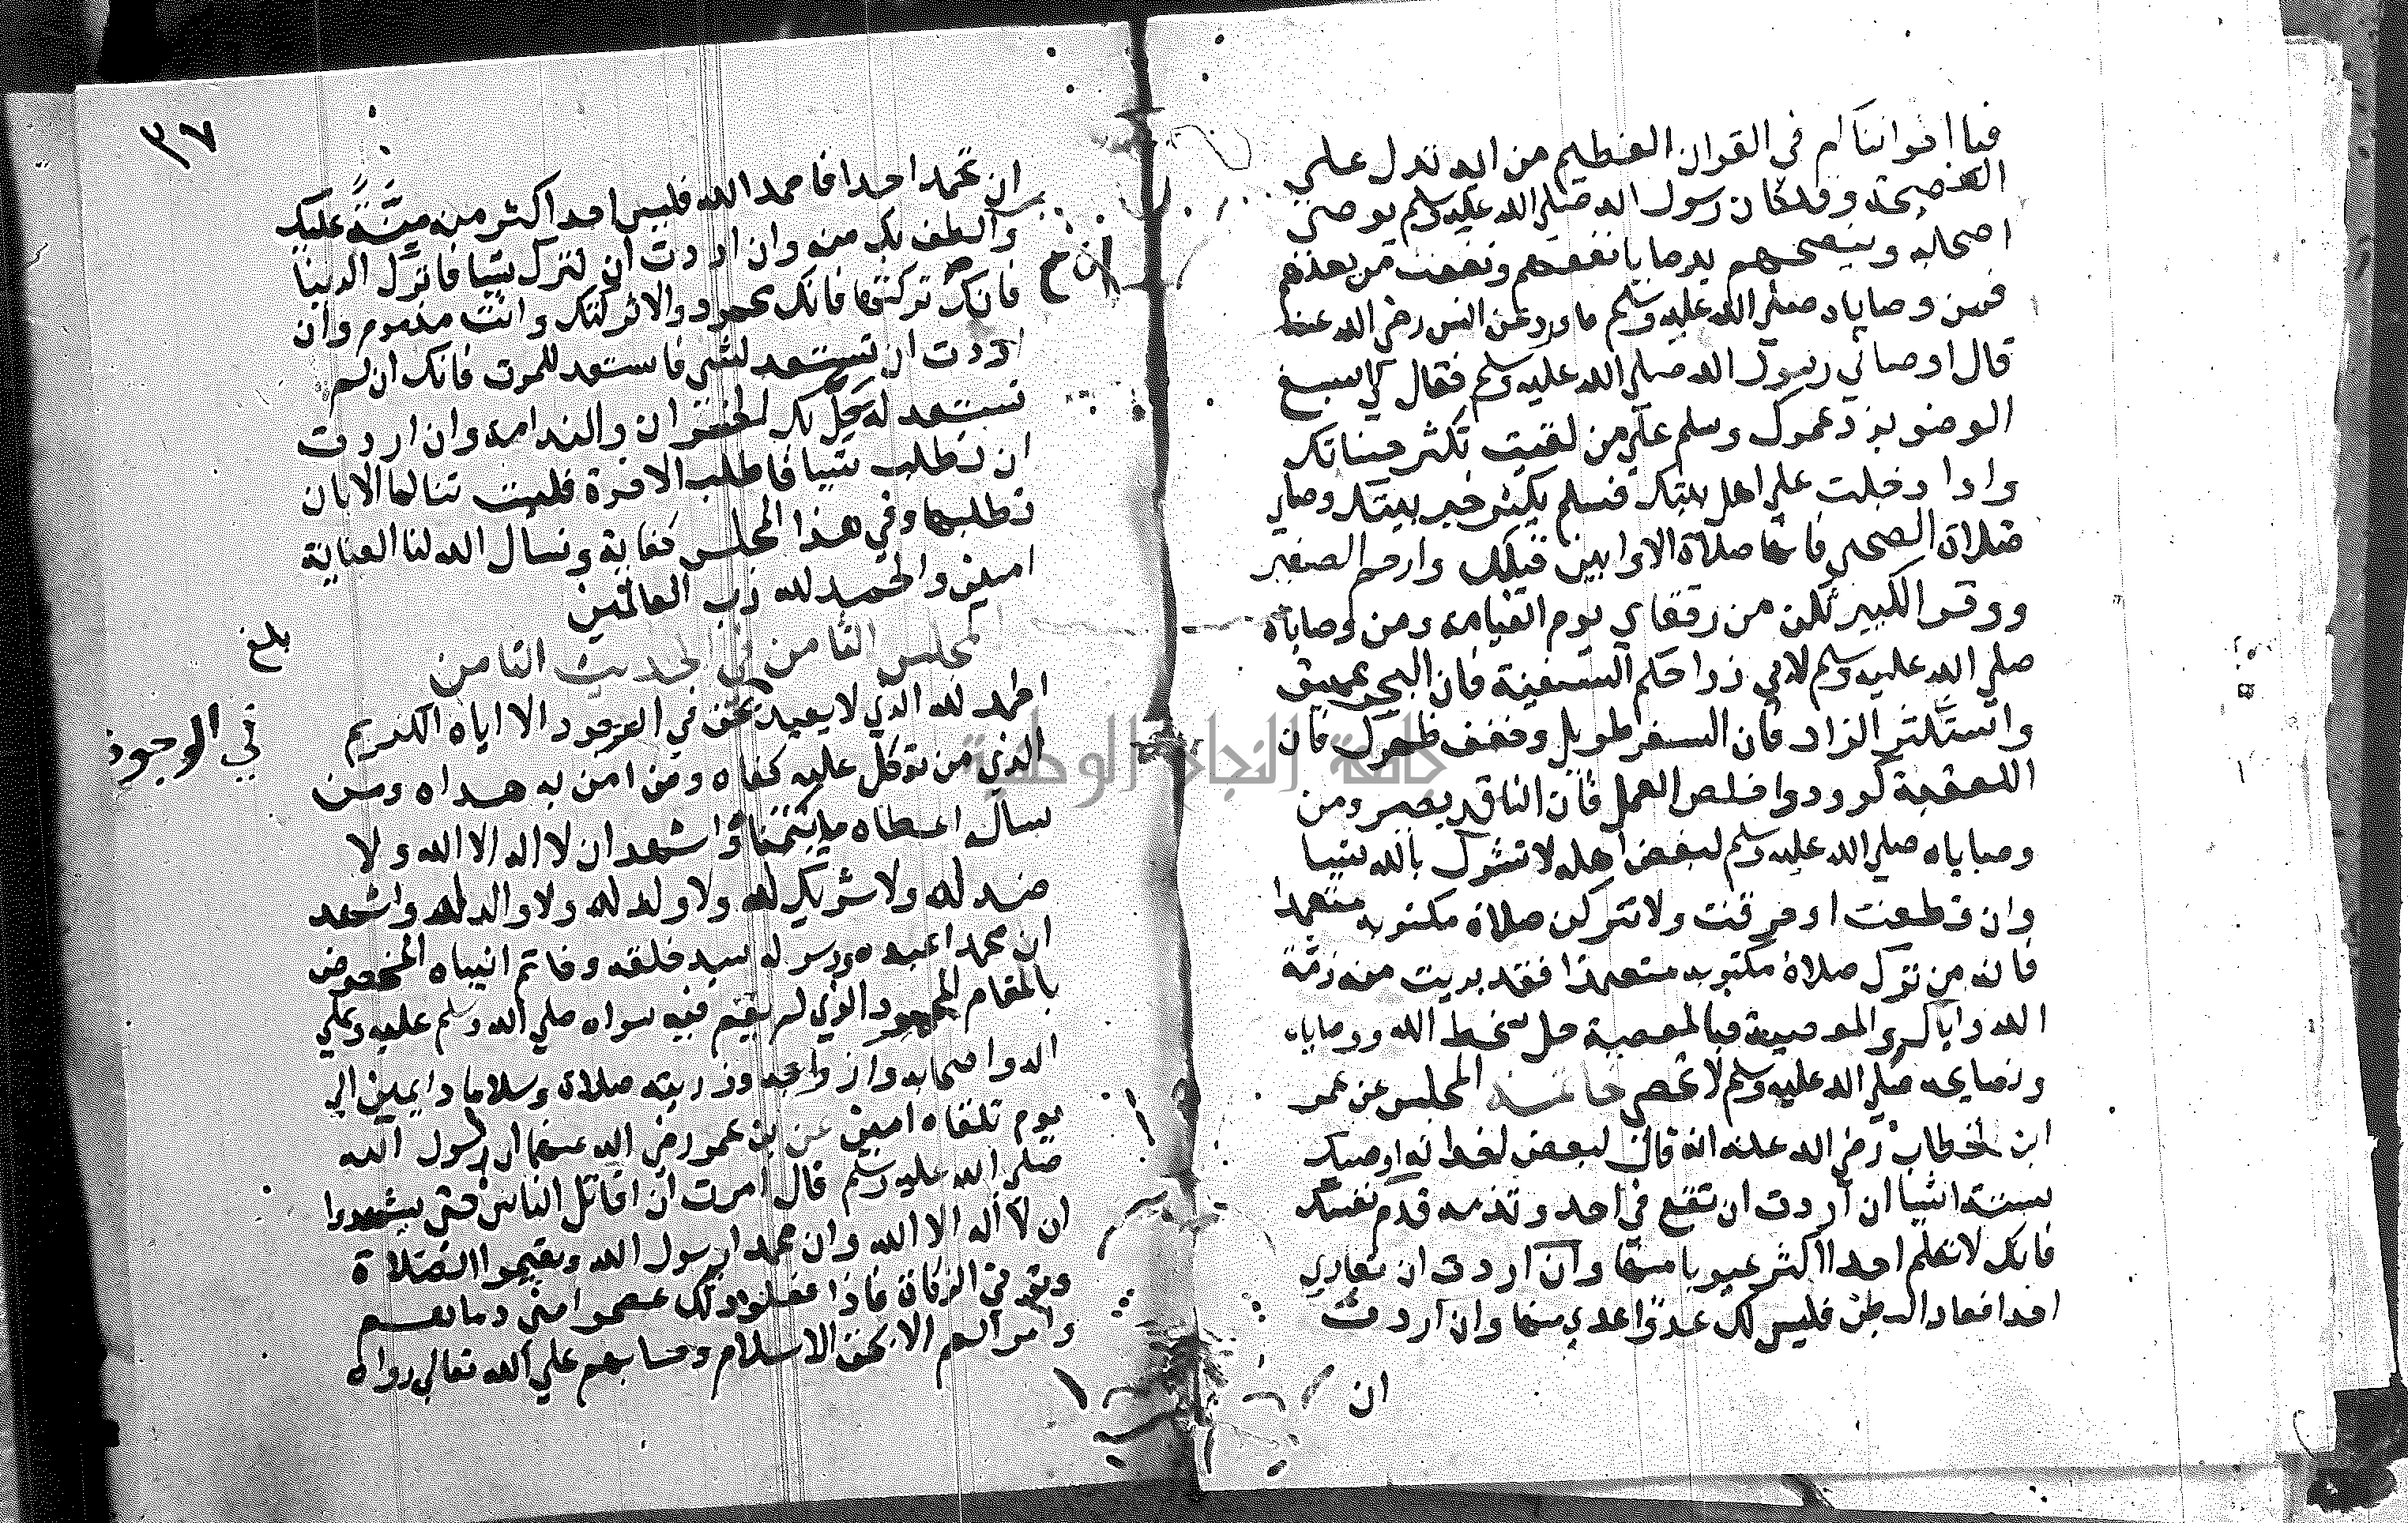 فيا اخواننا كم في القران العظيم من ايه تدل علي
النصيحة وقد كان رسول الله صلي الله عليه وسلم يوصي
اصحابه وينصحهم بوصايا نفعتهم ونفعت من بعدهم
فمن وصاياه صلي الله عليه وسلم ما ورد عن انس رضي الله عنه
قال اوصاني رسول الله صلي الله عليه وسلم فقال لي اسبغ
الوضو يزد عمرك وسلم علي من لقيت تكثر حسناتك
واذا دخلت علي اهل بيتك فسلم يكثر خير بيتك وصلي
صلاة الضحي فانها صلاة الاوابين قبلك وارحم الصغير
ووقر الكبير تكن من رفقاي يوم القيامه ومن وصاياه
صلي الله عليه وسلم لابي ذر احكم السفينة فان البحر عميق
واستكثر الزاد فان السفر طويل وخفف ظهرك فان
العقبة كوودوا خلص العمل فان الناقد بصير ومن
وصاياه صلي الله عليه وسلم لبعض اهله لا تشرك بالله شيا
وان قطعت او حرقت ولا تتركن صلاة مكتوبه متعمدا
فانه من ترك صلاة مكتوبه متعمدا فقد بريت منه ذمة
الله واياك والمعصية فبالمعصية حل سخط الله ووصاياه
ونصايحه صلي الله عليه وسلم لا تحصي خاتمة المجلس عن عمر
ابن الخطاب رضي الله عنه انه قال لبعض اخوانه اوصيك
بستة اشيا ان اردت ان تقع في احد وتذمه فذم نفسك
فانك لا تعلم احدا اكثر عيوبا منها وان اردت ان تعادي
احدا فعاد البطن فليس لك عدوا عدي منها وان اردت
ان
٣٧
ان تحمد احدا فاحمد الله فليس احد اكثر منه منة عليك
والطف بك منه وان اردت ان تترك شيا فاترك الدنيا
فانك تركتها فانك محمود والا تركتك وانت مذموم وان
اردت ان تستعد لشي فاستعد للموت فانك ان لم
تستعد له حل بك الخسران والندامه وان اردت
ان تطلب شيا فاطلب الاخرة فلست تنالها الا بان
تطلبها وفي هذا المجلس كفاية ونسال الله لنا العناية
امين والحمد لله رب العالمين
بلغ
مجلس الثامن في الحديث الثامن
الحمد لله الذي لا يعبد بحق في الوجود الا اياه الكريم
في الوجود
الذي من توكل عليه كفاه ومن امن به هداه ومن
سال اعطاه ما يتمناه واشهد ان لا اله الا الله ولا
ضد له ولا شريك له ولا ولد له ولا والد له واشهد
ان محمدا عبده ورسوله سيد خلقه وخاتم انبياه المخصوص
بالمقام المحمود الذي لم يقم فيه سواه صلي الله وسلم عليه وعلي
اله واصحابه وازواجه وذريته صلاة وسلاما دايمين الي
يوم تلقاه امين عن بن عمر رضي الله عنهما ان رسول الله
صلي الله عليه وسلم قال امرت ان اقاتل الناس حتي يشهدوا
ان لا اله الا الله وان محمدا رسول الله ويقيموا الصلاة
ويوتي الزكاة فاذا فعلوا ذلك عصموا مني دماءهم
وامرالهم الا بحق الاسلام وحسابهم علي الله تعالي رواه
جامعة النجاح الوطنية